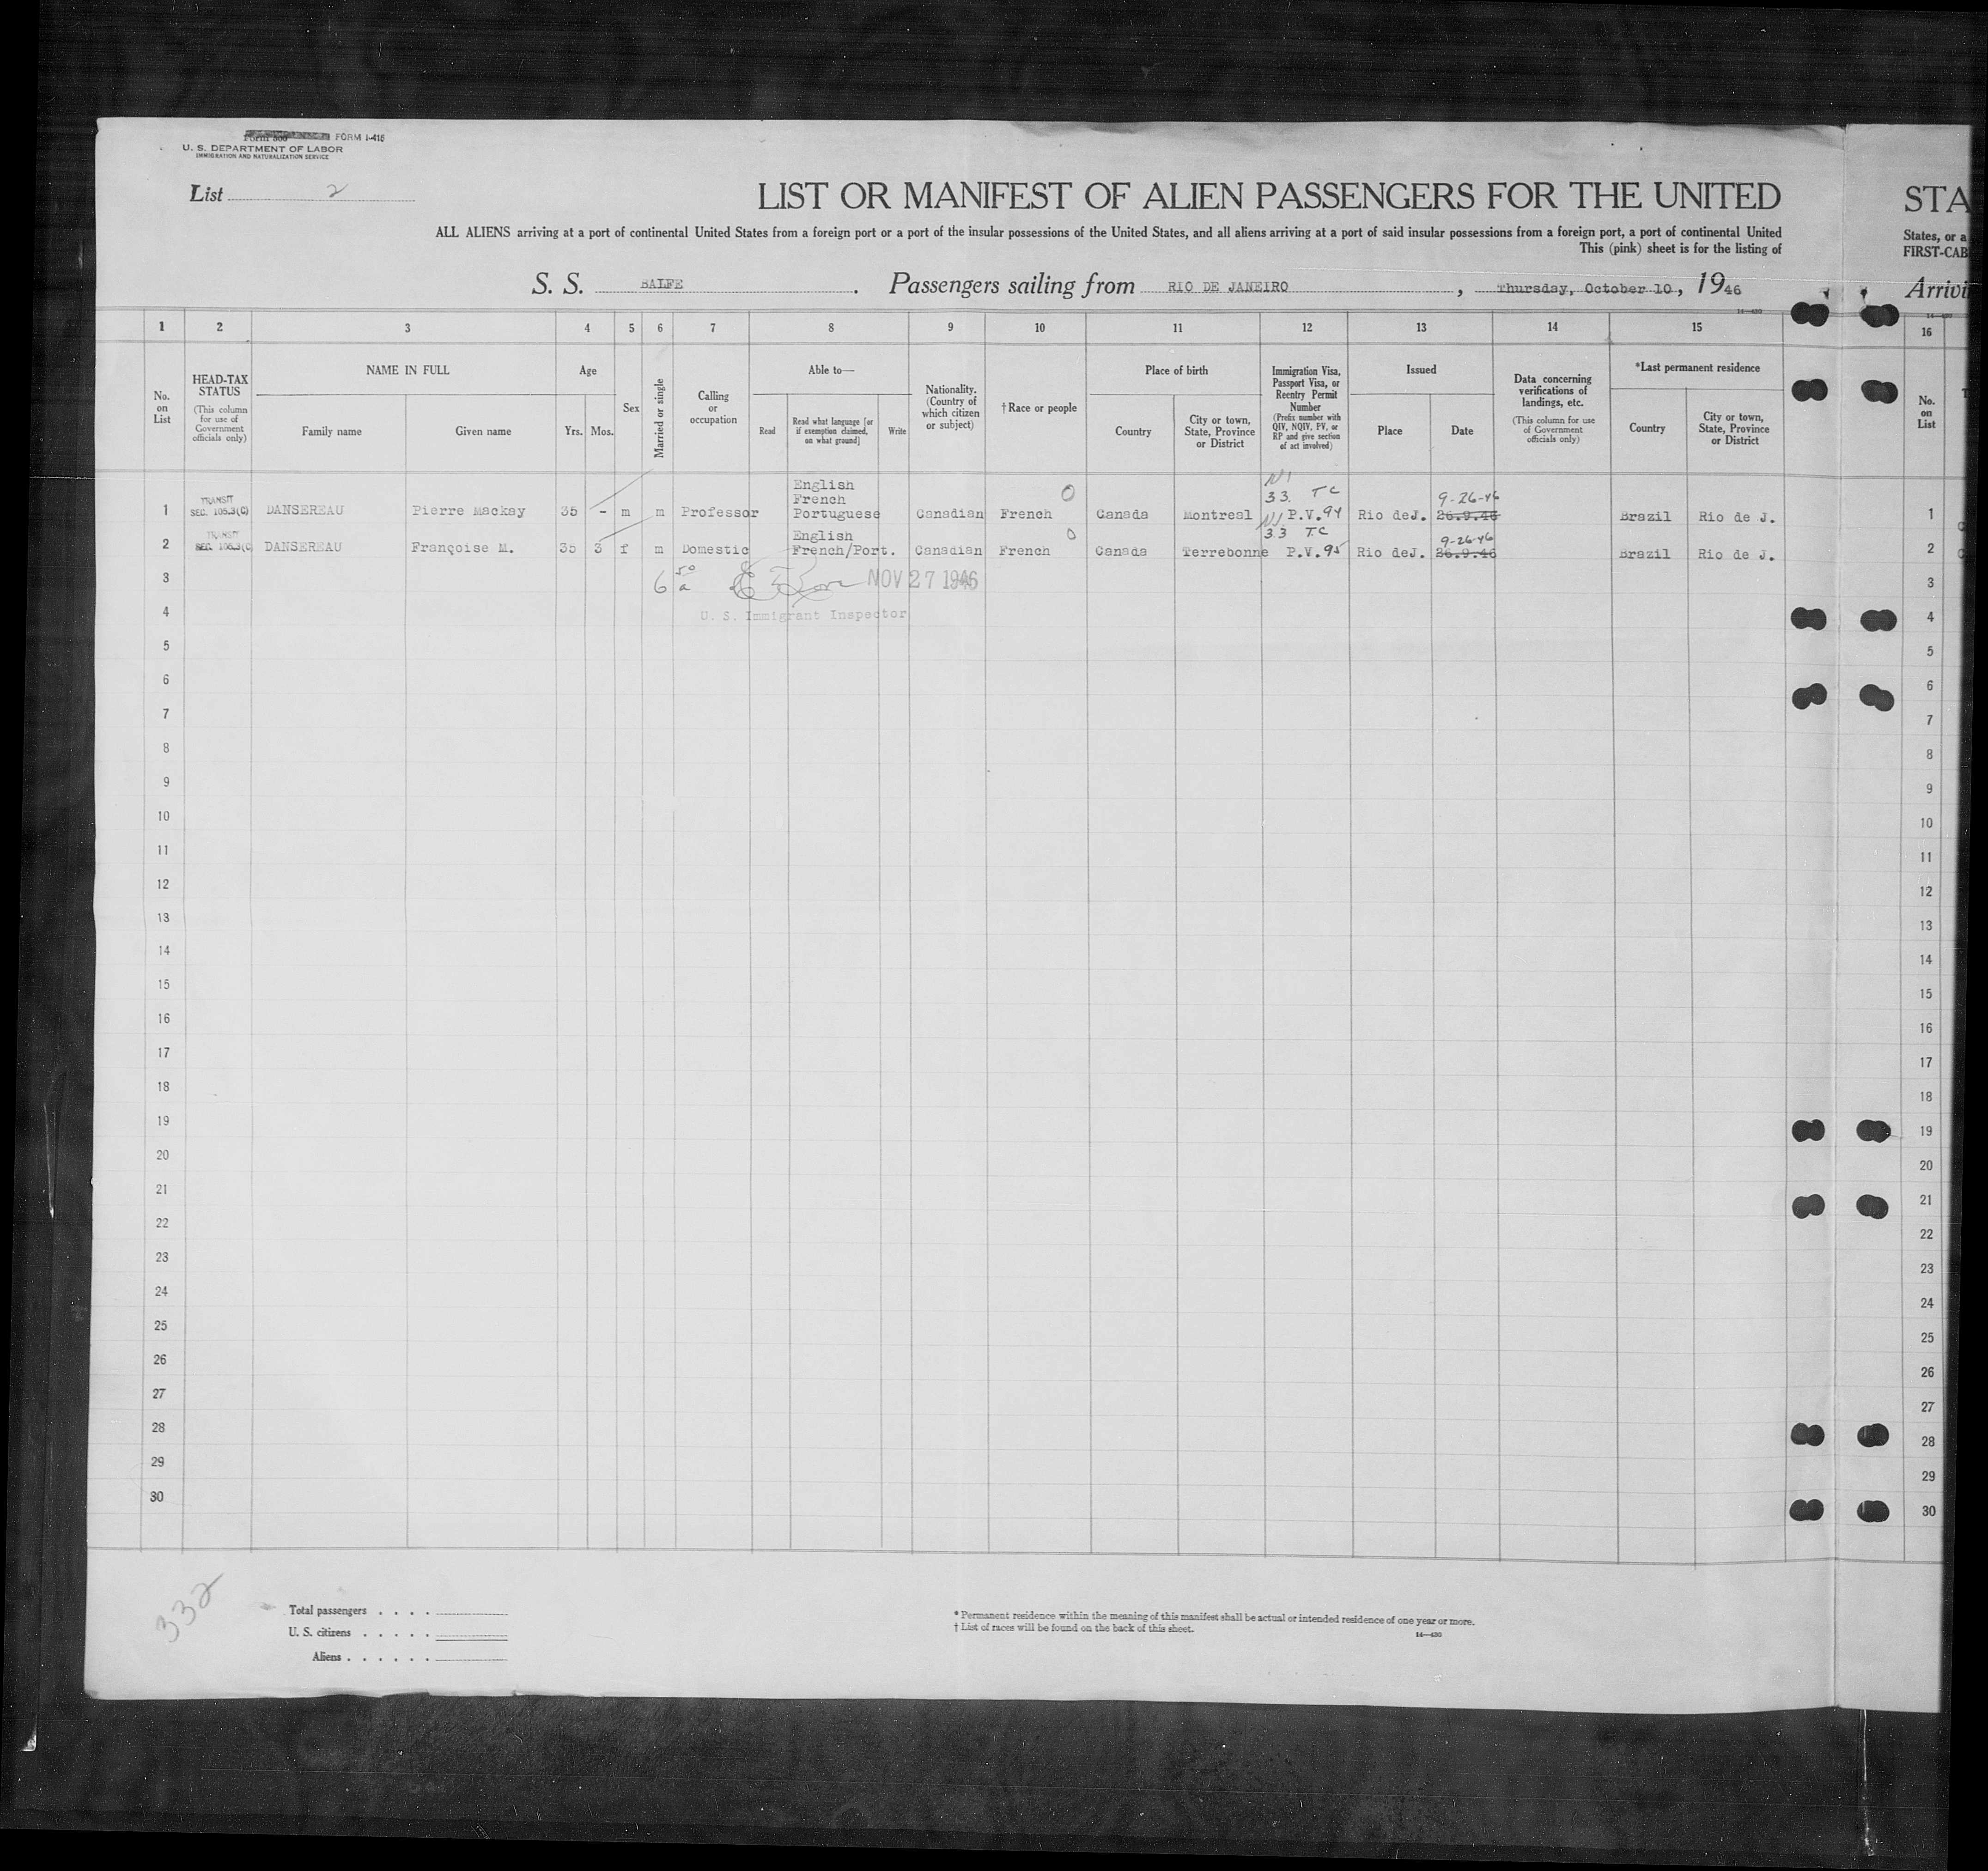 FORM I-415
U. S. DEPARTMENT OF LABOR
IMMIGRATION AND NATURALIZATION SERVICE
List 2
LIST OR MANIFEST OF ALIEN PASSENGERS FOR THE UNITED STA
ALL ALIENS arriving at a port of continental United States from a foreign port or a port of the insular possessions of the United States, and all aliens arriving at a port of said insular possessions from a foreign port, a port of continental United States, or a
This (pink) sheet is for the listing of FIRST-CAB
S. S. BALFE. Passengers sailing from RIO DE JANEIRO, Thursday, October 10, 1946 Arrivi
14—430
1 2 3 4 5 6 7 8 9 10 11 12 13 14 15 16
No. on List
HEAD-TAX STATUS
(This column for use of Government officials only)
NAME IN FULL
Family name Given name
Age
Yrs. Mos.
Sex
Married or single
Calling or occupation
Able to—
Read Read what language [or if exemption claimed, on what ground] Write
Nationality. (Country of which citizen or subject)
†Race or people
Place of birth
Country City or town, State, Province or District
Immigration Visa, Passport Visa, or Reentry Permit Number
(Prefix number with QIV, NQIV, PV, or RP and give section of act involved)
Issued
Place Date
Data concerning verifications of landings, etc.
(This column for use of Government officials only)
*Last permanent residence
Country City or town, State, Province or District
No. on List
1 TRANSIT SEC. 105.3(C) DANSEREAU Pierre Mackay 35 - m m Professor English French Portuguese Canadian French Canada Montreal 33 TC P.V. 94 Rio deJ. 9-26-46 26.9.46 Brazil Rio de J. 1
2 TRANSIT SEC. 105.3(C) DANSEREAU Françoise M. 35 3 f m Domestic English French/Port. Canadian French Canada Terrebonne 33 TC P.V. 95 Rio deJ. 9-26-46 26.9.46 Brazil Rio de J. 2
3 NOV 27 1946 3
4 U. S. Immigrant Inspector 4
5 5
6 6
7 7
8 8
9 9
10 10
11 11
12 12
13 13
14 14
15 15
16 16
17 17
18 18
19 19
20 20
21 21
22 22
23 23
24 24
25 25
26 26
27 27
28 28
29 29
30 30
332
Total passengers . . . .
U. S. citizens . . . . .
Aliens . . . . . .
* Permanent residence within the meaning of this manifest shall be actual or intended residence of one year or more.
† List of races will be found on the back of this sheet.
14—430